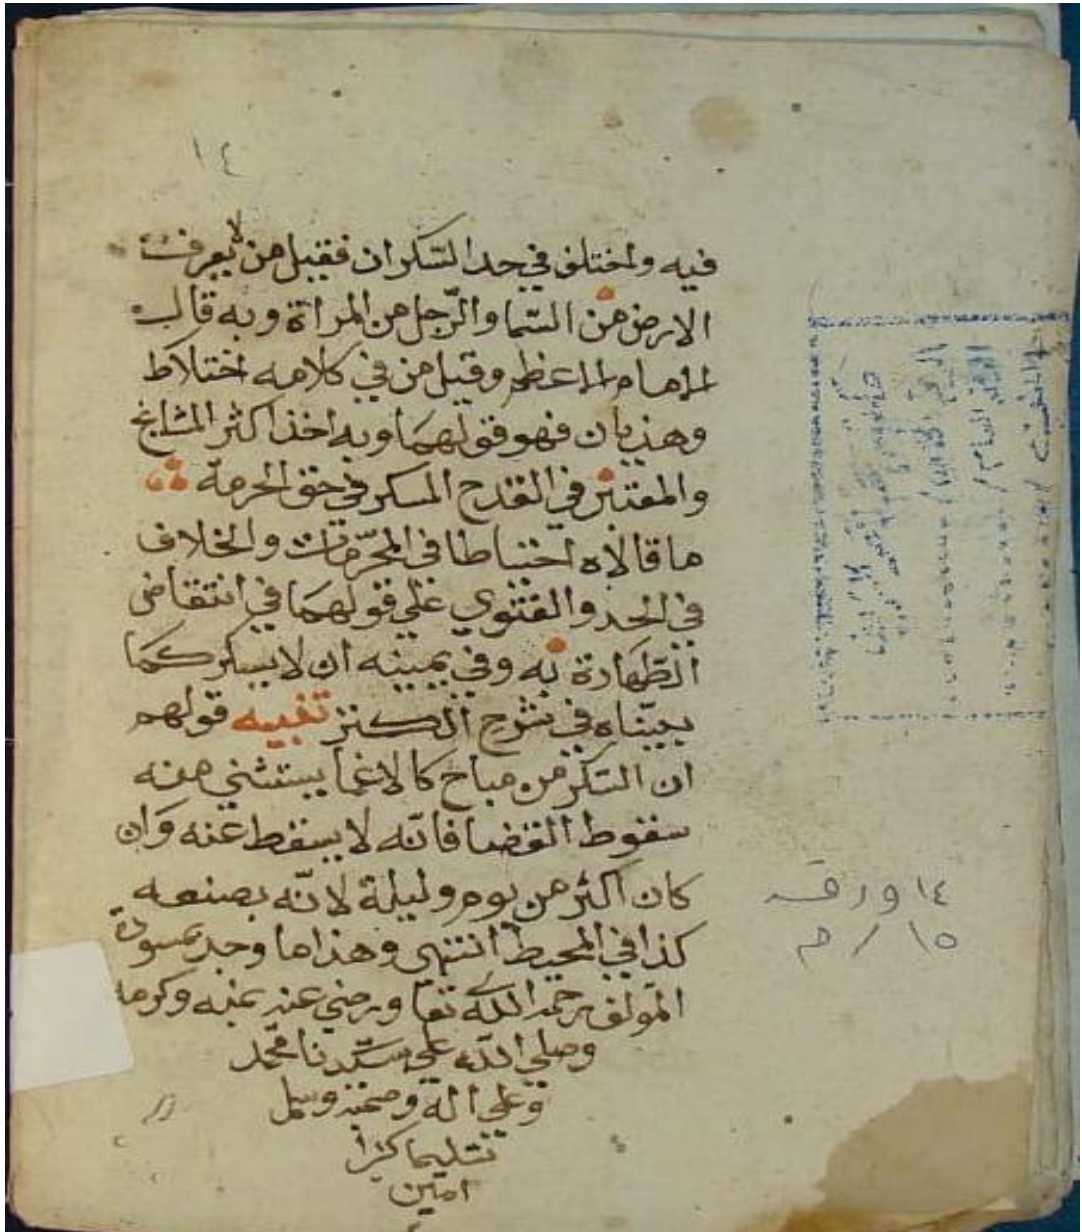 ١٤
فيه واختلف في حد السكران فقيل من لا يعرف
الارض من السما والرّجل من المراة وبه قال
الامام الاعظم وقيل من في كلامه اختلاط
وهذيان فهو قولهما وبه اخذ اكثر المشايخ
والمعتبر في القدح المسكر في حق الحرمة
ما قالاه احتياطا في المحرّمات والخلاف
في الحد والفتوي علي قولهما في انتقاض
الطّهارة به وفي يمينه ان لا يسكر كما
بيّناه في شرح الكنز تنبيه قولهم
ان السّكر من مباح كالاغما يستثني منه
سقوط القضا فانّه لا يسقط عنه وان
كان اكثر من يوم وليلة لانّه بصنعه
كذا في المحيط انتهى وهذا ما وجد بمسودة
المؤلف رحمه الله تعا ورضي عنه بمنه وكرمه
وصلي الله علي سيّدنا محمّد
وعلي آله وصحبه وسلم
تسليما كثيرا
امين
١٤ ورقه
١٥ / م